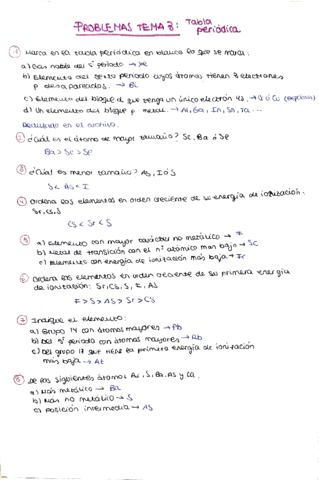 PROBLEMAS TEMA 8: Tabla periódica
1 Marca en la tabla periódica en blanco lo que se indica:
a) Gas noble del 5º periodo → Xe
b) Elemento del sexto periodo cuyos átomos tienen 3 electrones
p desapareados. → Bi
c) Elemento del bloque d que tenga un único electrón 4s. →
d) Un elemento del bloque p metal. → Al, Ga, In, Sn,
Realizado en el archivo.
2 ¿Cuál es el átomo de mayor tamaño? Sc, Ba ó Se
Ba > Sc > Se
3 ¿Cuál es menor tamaño? As, I ó S
S < As < I
4 Ordena los elementos en orden creciente de su energía de ionización:
Sr, Cs, S
Cs < Sr < S
5 a) Elemento con mayor carácter no metálico → F
b) Metal de transición con el nº atómico mas bajo → Sc
c) Elemento con energía de ionización más baja → Fr
6 Ordena los elementos en orden creciente de su primera energía
de ionización: Sr, Cs, S, F, As
F > S > As > Sr > Cs
7 Indique el elemento:
a) Grupo 14 con átomos mayores → Pb
b) Del 5º periodo con átomos mayores → Rb
c) Del grupo 17 que tiene la primera energía de ionización
más baja → At
8 De los siguientes átomos: S, Ba, As y Ca.
a) Más metálico → Ba
b) Más no metálico → S
c) Posición intermedia → As